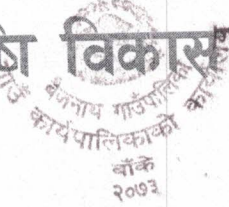 विकास
बैजनाथ गाउँपालिका
गाउँ कार्यपालिकाको कार्यालय
बाँके
२०७३